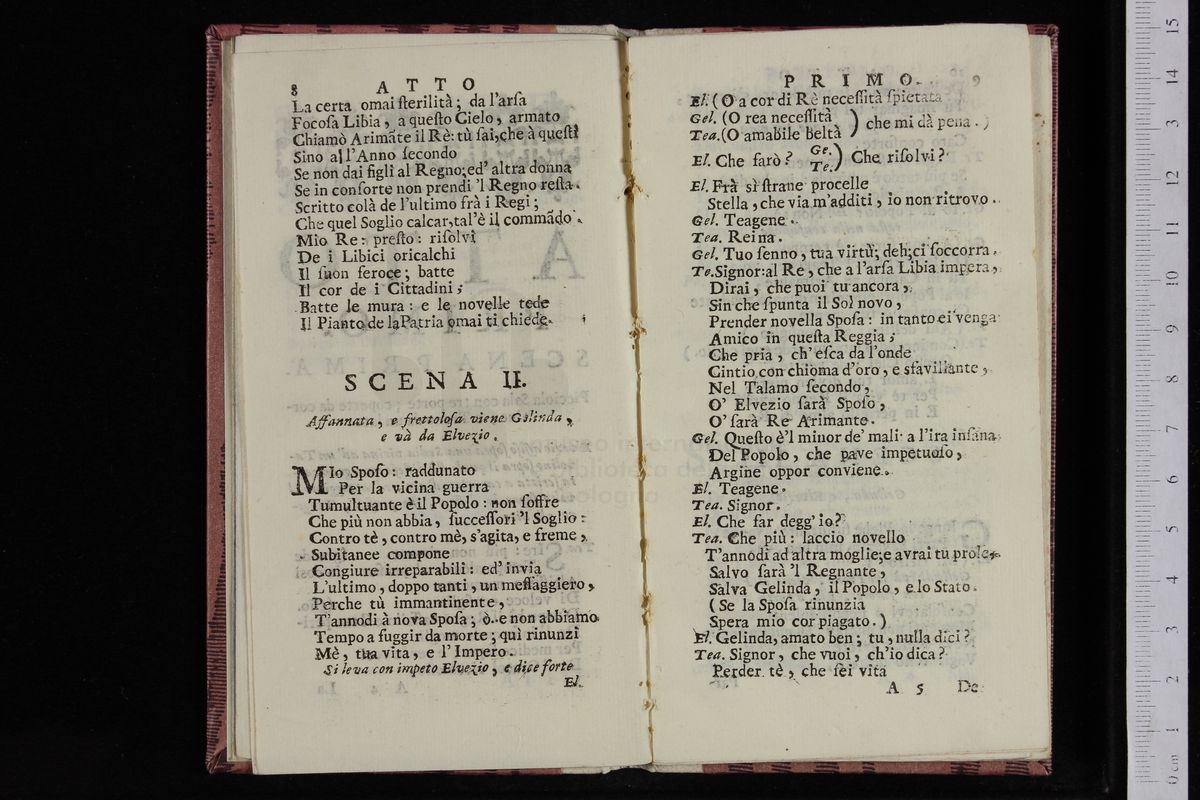 8 ATTO
La certa omai ſterilità; da l'arſa
Focoſa Libia, a queſto Cielo, armato
Chiamò Arimāte il Rè: tù ſai, che à queſti
Sino al l'Anno ſecondo
Se non dai figli al Regno; ed' altra donna
Se in conſorte non prendi 'l Regno reſta.
Scritto colà de l'ultimo frà i Regi;
Che quel Soglio calcar, tal'è il commādo.
Mio Re: preſto: riſolvi
De i Libici oricalchi
Il ſuon feroce; batte
Il cor de i Cittadini;
Batte le mura: e le novelle tede
Il Pianto de la Patria omai ti chiede.
SCENA II.
Affannata, e frettoloſa viene Gelinda,
e và da Elvezio.
MIo Spoſo: raddunato
Per la vicina guerra
Tumultuante è il Popolo: non ſoffre
Che più non abbia, ſucceſſori 'l Soglio:
Contro tè, contro mè, s'agita, e freme,
Subitanee compone
Congiure irreparabili: ed' invia
L'ultimo, doppo tanti, un meſſaggiero,
Perche tù immantinente,
T'annodi à nova Spoſa; ò.. e non abbiamo
Tempo a fuggir da morte; qui rinunzi
Mè, tua vita, e l' Impero.
Si leva con impeto Elvezio, e dice forte
El.
PRIMO. 9
El. (O a cor di Rè neceſſità ſpietata
Gel. (O rea neceſſità ) che mi dà pena.)
Tea. (O amabile beltà
El. Che farò? Ge. Te.) Che riſolvi?
El. Frà sì ſtrane procelle
Stella, che via m'additi, io non ritrovo.
Gel. Teagene.
Tea. Reina.
Gel. Tuo ſenno, tua virtù; deh; ci ſoccorra.
Te. Signor: al Re, che a l'arſa Libia impera,
Dirai, che puoi tu ancora,
Sin che ſpunta il Sol novo,
Prender novella Spoſa: in tanto ei venga
Amico in queſta Reggia;
Che pria, ch' eſca da l'onde
Cintio con chioma d'oro, e sfavillante,
Nel Talamo ſecondo,
O' Elvezio ſarà Spoſo,
O' ſarà Re Arimante.
Gel. Queſto è'l minor de' mali: a l'ira inſana
Del Popolo, che pave impetuoſo,
Argine oppor conviene.
El. Teagene.
Tea. Signor.
El. Che far degg' io?
Tea. Che più: laccio novello
T'annodi ad altra moglie; e avrai tu prole,
Salvo ſarà 'l Regnante,
Salva Gelinda, il Popolo, e lo Stato.
(Se la Spoſa rinunzia
Spera mio cor piagato.)
El. Gelinda, amato ben; tu, nulla dici?
Tea. Signor, che vuoi, ch'io dica?
Perder tè, che ſei vita
A 5 De